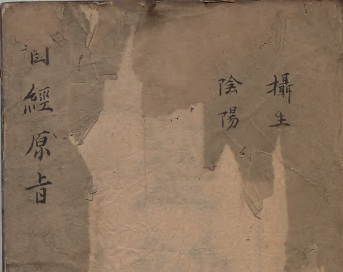 攝生
陰陽
內經原旨